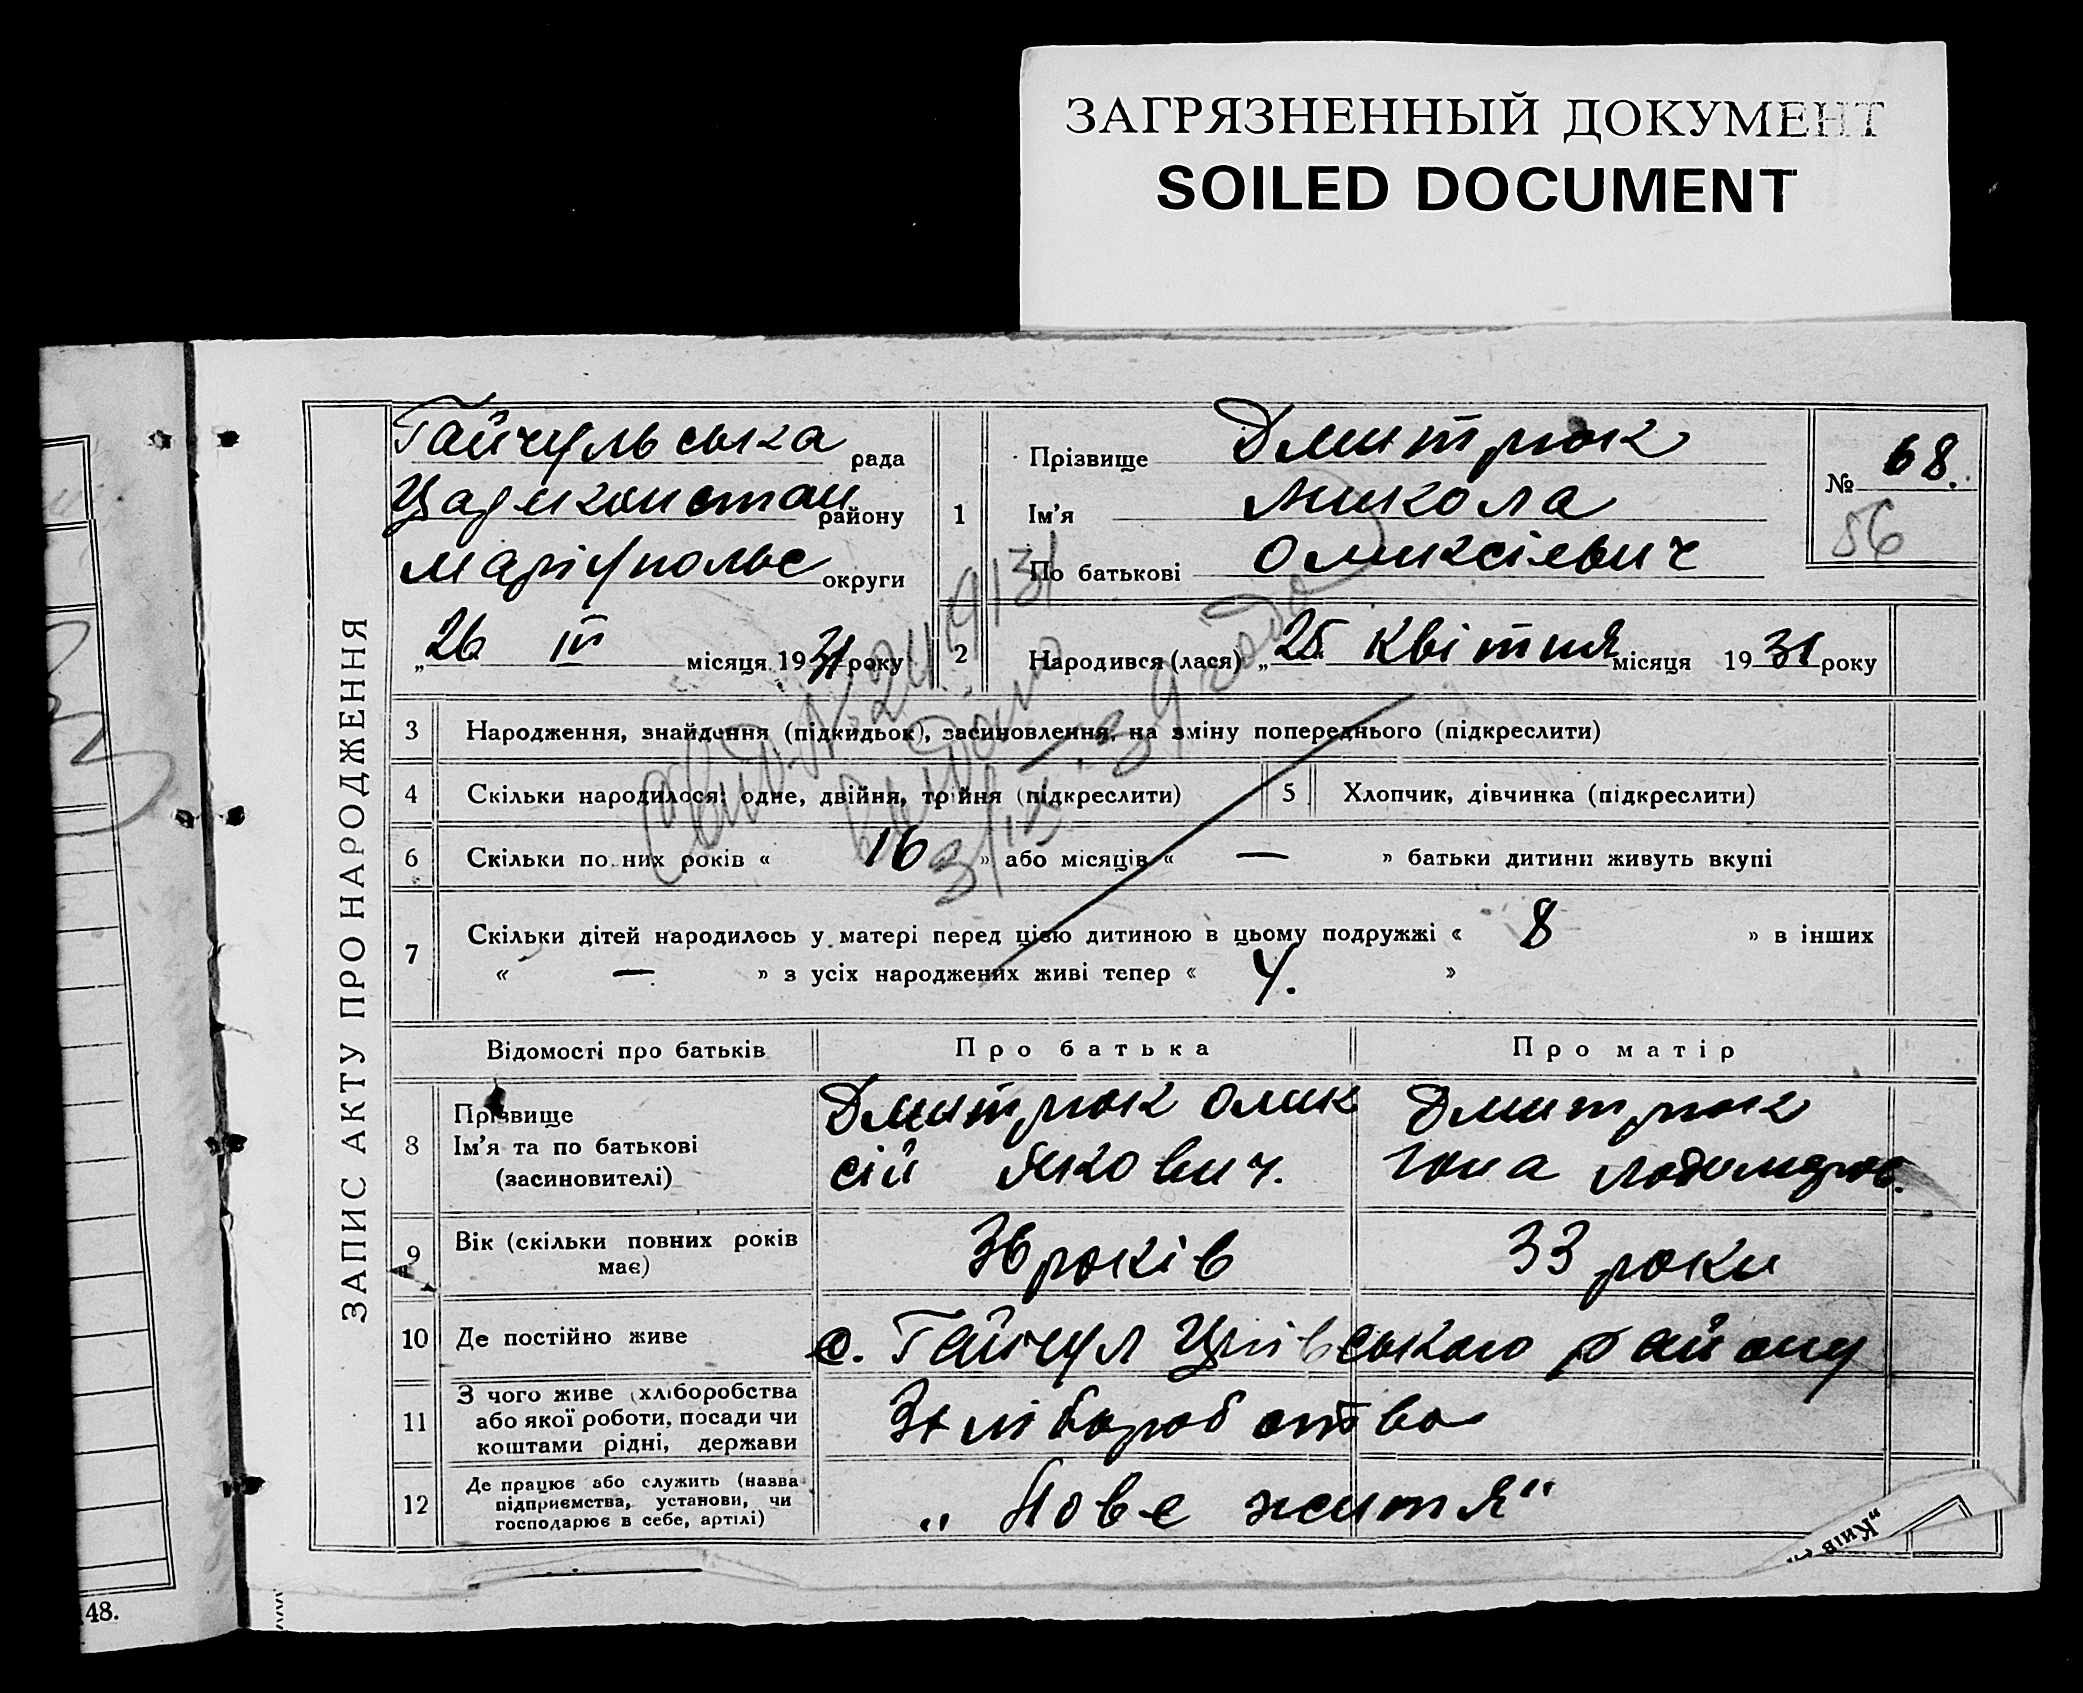 ЗАГРЯЗНЕННЫЙ ДОКУМЕНТ
SOILED DOCUMENT
ЗАПИС АКТУ ПРО НАРОДЖЕННЯ
Гайчульська рада
району
Маріупольс округи
„26 IV місяця 1931 року
1
Прізвище Дмитрюк
Ім'я Микола
По батькові Оликсієвич
№ 68.
56
2 Народився (лася) „25 Квітня місяця 1931 року
3 Народження, знайдення (підкидьок), засиновлення, на зміну попереднього (підкреслити)
4 Скільки народилося: одне, двійня, трійня (підкреслити)
5 Хлопчик, дівчинка (підкреслити)
6 Скільки повних років « 16 » або місяців « — » батьки дитини живуть вкупі
7 Скільки дітей народилось у матері перед цією дитиною в цьому подружжі « 8 » в інших
« — » з усіх народжених живі тепер « 4. »
Відомості про батьків Про батька Про матір
8 Прізвище
Ім'я та по батькові
(засиновителі)
Дмитрюк Олик
сій Якович.
Дмитрюк
9 Вік (скільки повних років
має)
36 років
33 роки
10 Де постійно живе с. Гайчул району
11 З чого живе (хліборобства
або якої роботи, посади чи
коштами рідні, держави
Зхліборобства
12 Де працює або служить (назва
підприємства, установи, чи
господарює в себе, артілі)
„Нове життя"
„Київ
48.